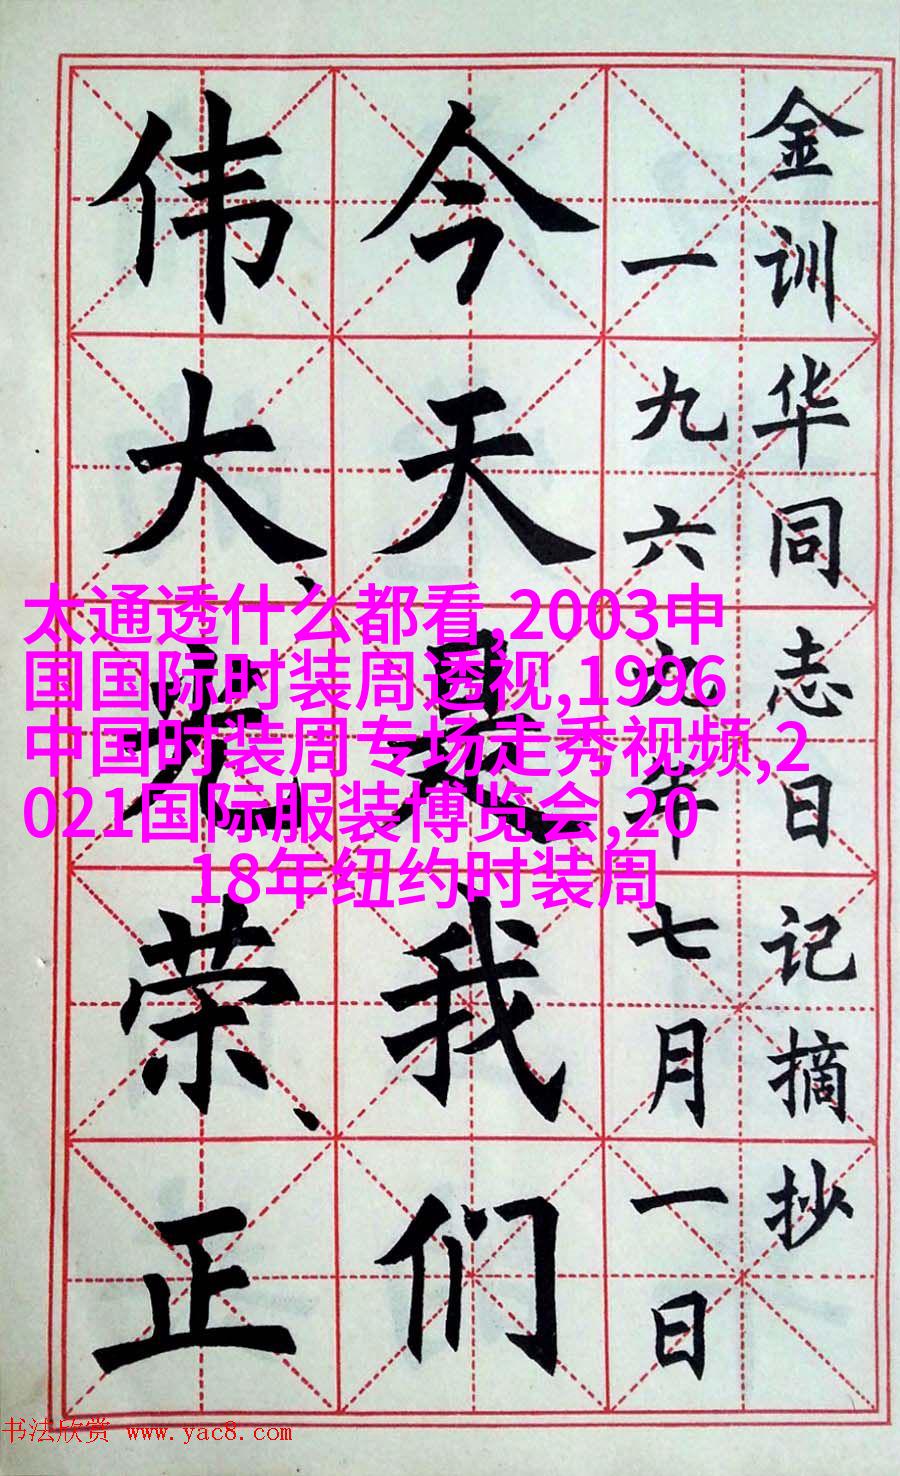 金训华同志日记摘抄
一九六九年七月一日
今天是我们
伟大、光荣、正
太通透什么都看,2003中
国国际时装周透视,1996
中国时装周专场走秀视频,2
021国际服装博览会,20
18年纽约时装周
书法欣赏 www.yac8.com